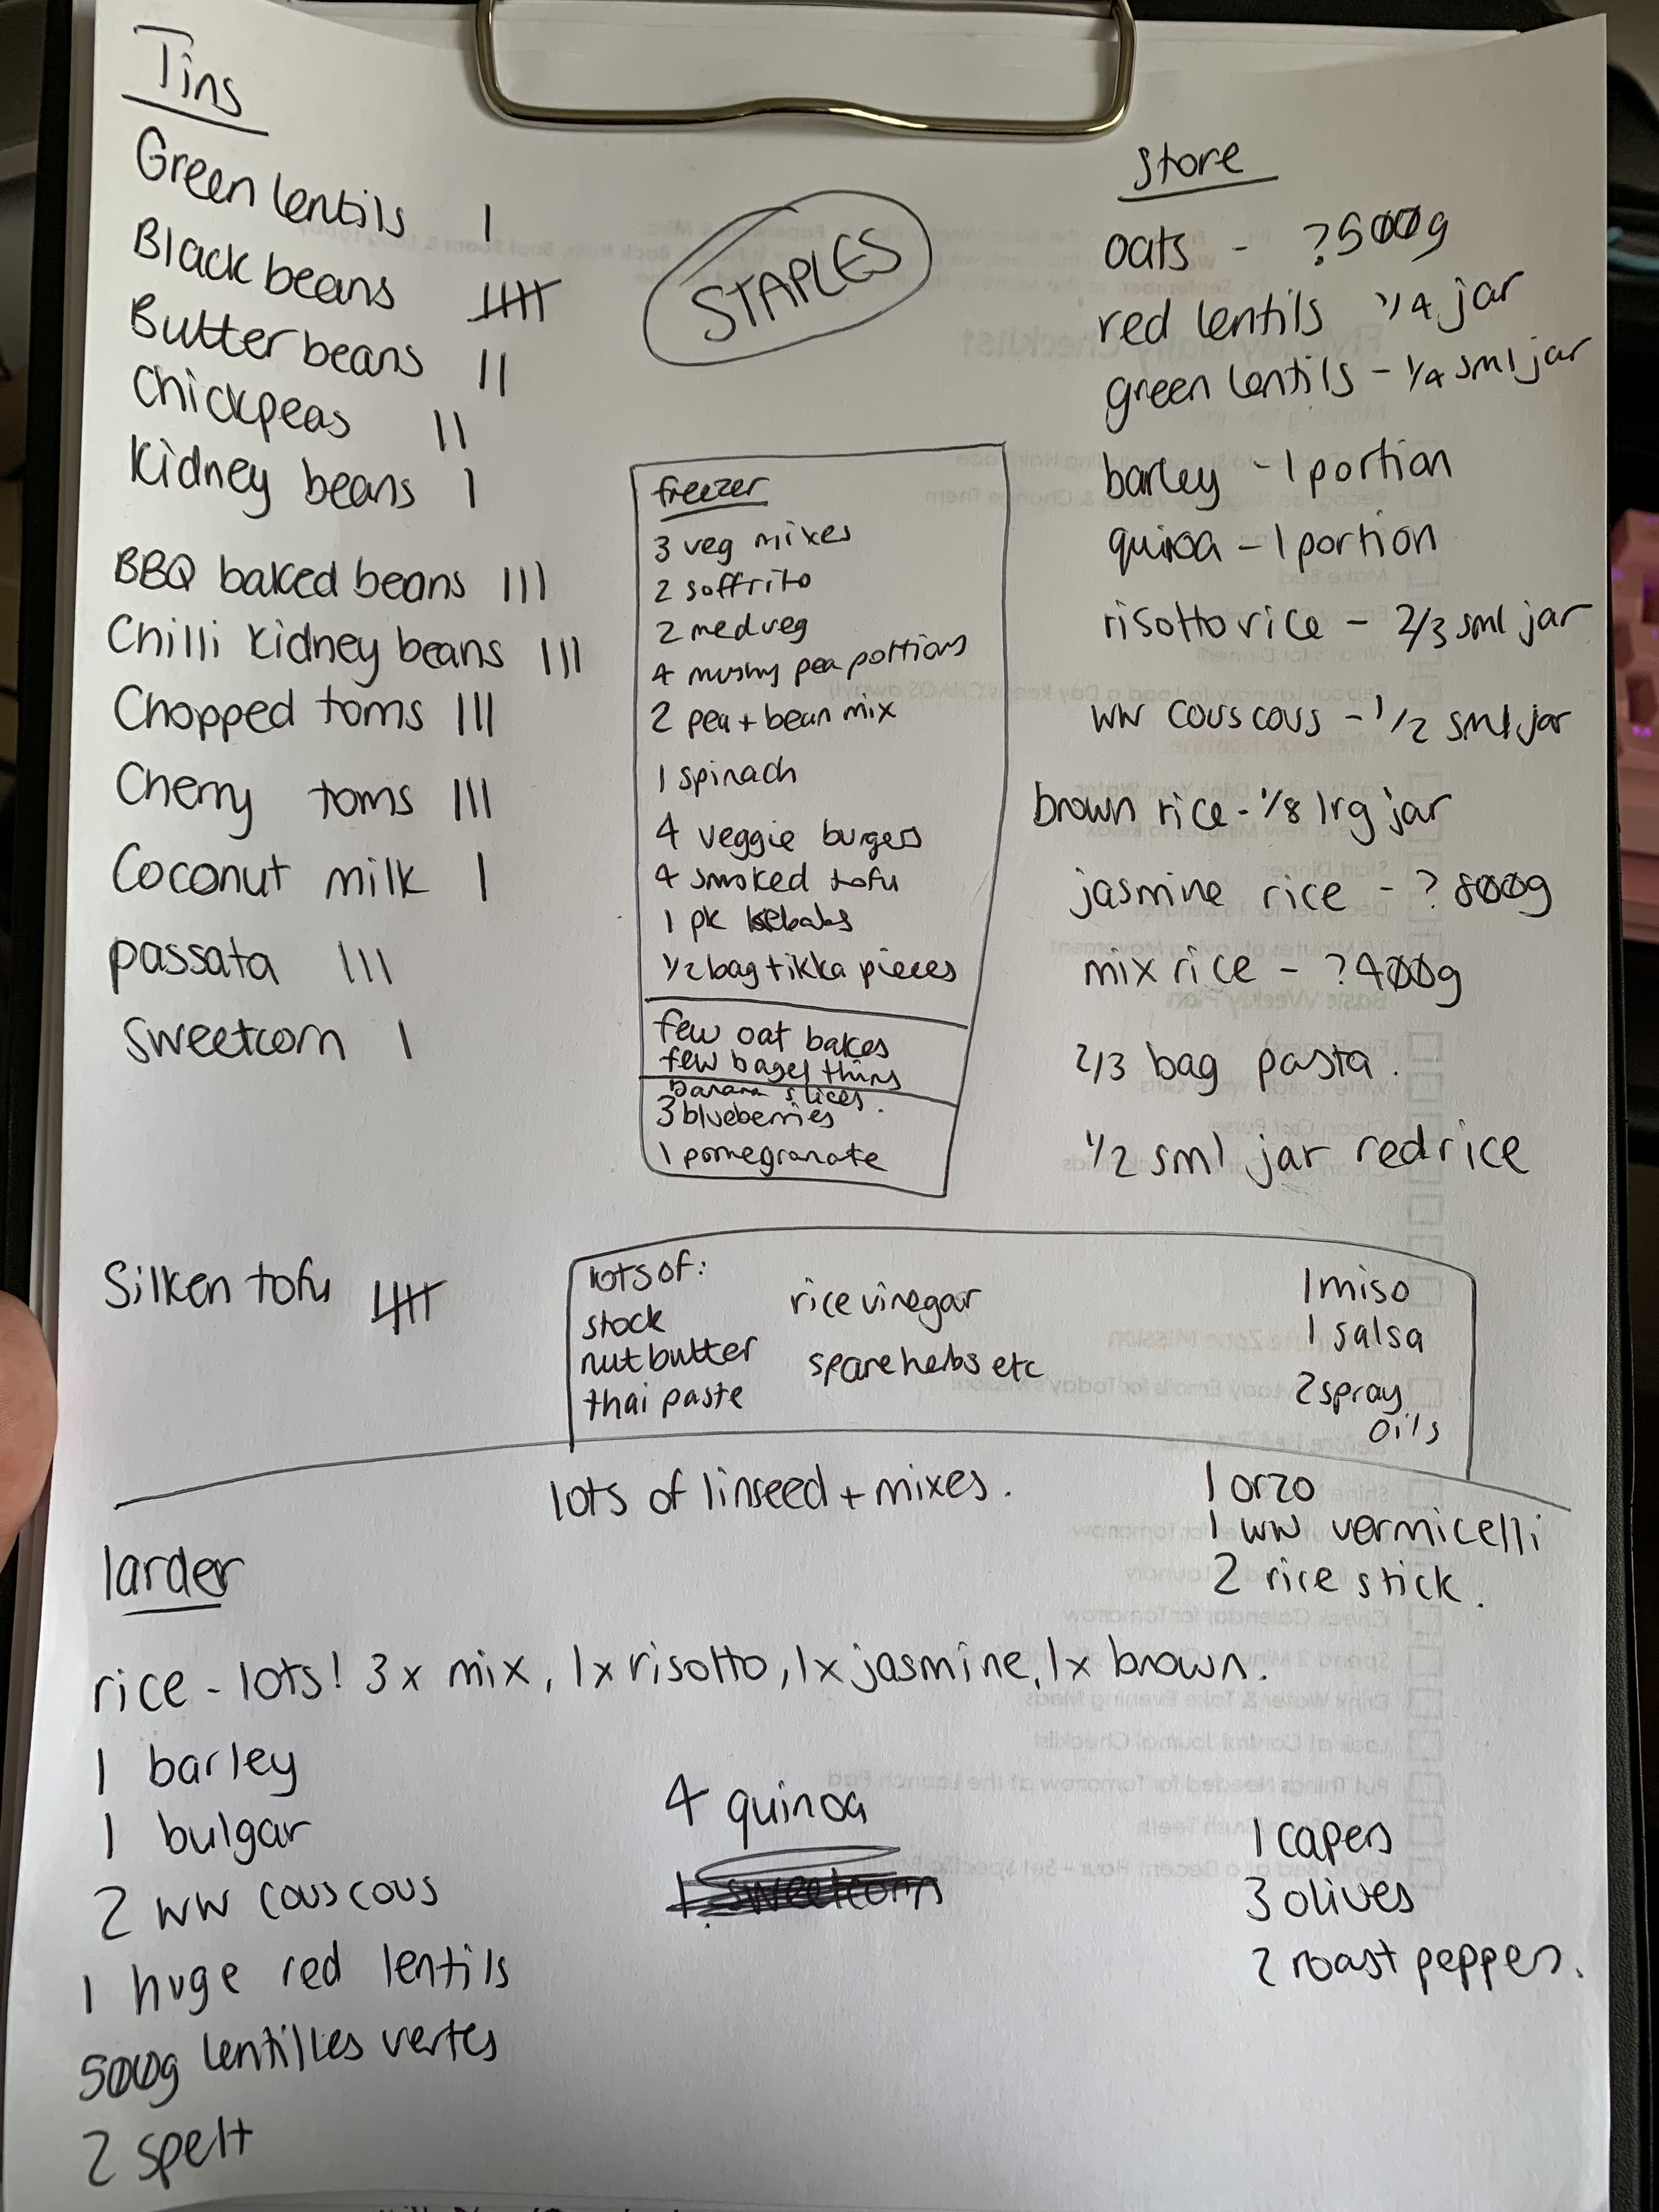 Tins
Green lentils |
Black beans 𝍸
Butter beans ||
Chickpeas ||
Kidney beans |
BBQ baked beans |||
Chilli kidney beans |||
Chopped toms |||
Cherry toms |||
Coconut milk |
passata |||
sweetcorn |
Silken tofu 𝍸
STAPLES
freezer
3 veg mixes
2 soffrito
2 med veg
4 mushy pea portions
2 pea + bean mix
1 spinach
4 veggie burgers
4 smoked tofu
1 pk kebabs
1/2 bag tikka pieces
few oat bakes
few bagel thins
banana slices.
3 blueberries
1 pomegranate
store
oats - ?500g
red lentils 1/4 jar
green lentils - 1/4 sml jar
barley - 1 portion
quinoa - 1 portion
risotto rice - 2/3 sml jar
ww couscous - 1/2 sml jar
brown rice - 1/8 lrg jar
jasmine rice - ? 800g
mix rice - ?400g
2/3 bag pasta.
1/2 sml jar red rice
lots of:
stock
nut butter
thai paste
rice vinegar
spare herbs etc
1 miso
1 salsa
2 spray
oils
lots of linseed + mixes.
1 orzo
1 ww vermicelli
2 rice stick.
larder
rice - lots! 3x mix, 1x risotto, 1x jasmine, 1x brown.
1 barley
1 bulgar
2 ww couscous
1 huge red lentils
500g lentilles vertes
2 spelt
4 quinoa
1 sweetcorn
1 capers
3 olives
2 roast peppers.